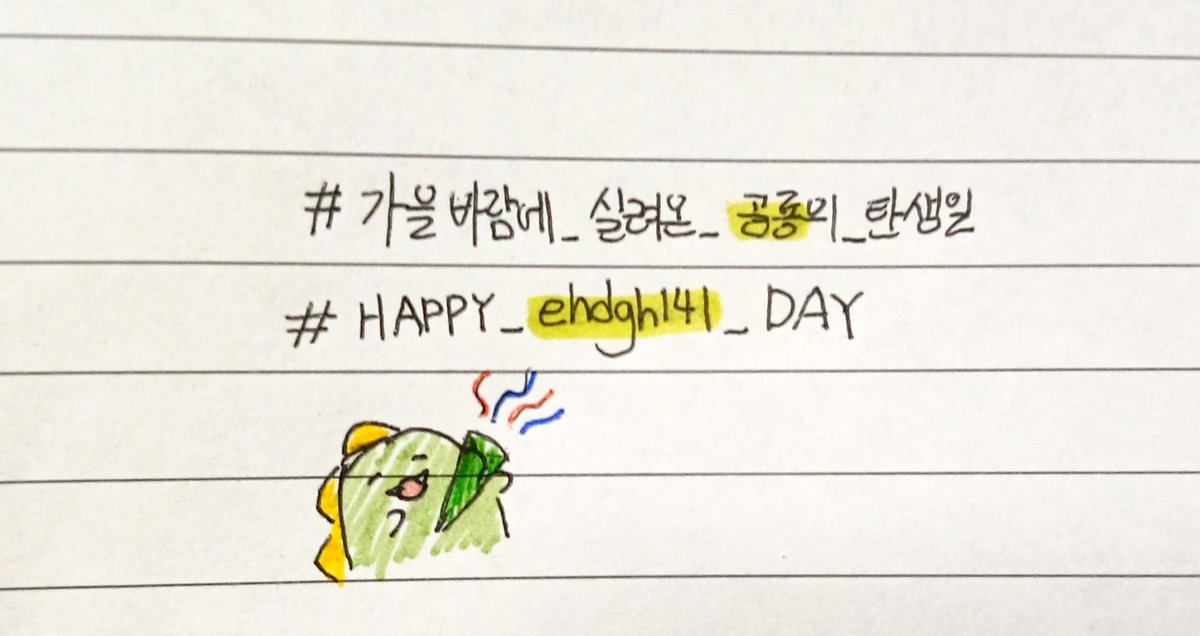 # 가을바람에_실려온_공룡의_탄생일
# HAPPY_ehdgh141_DAY